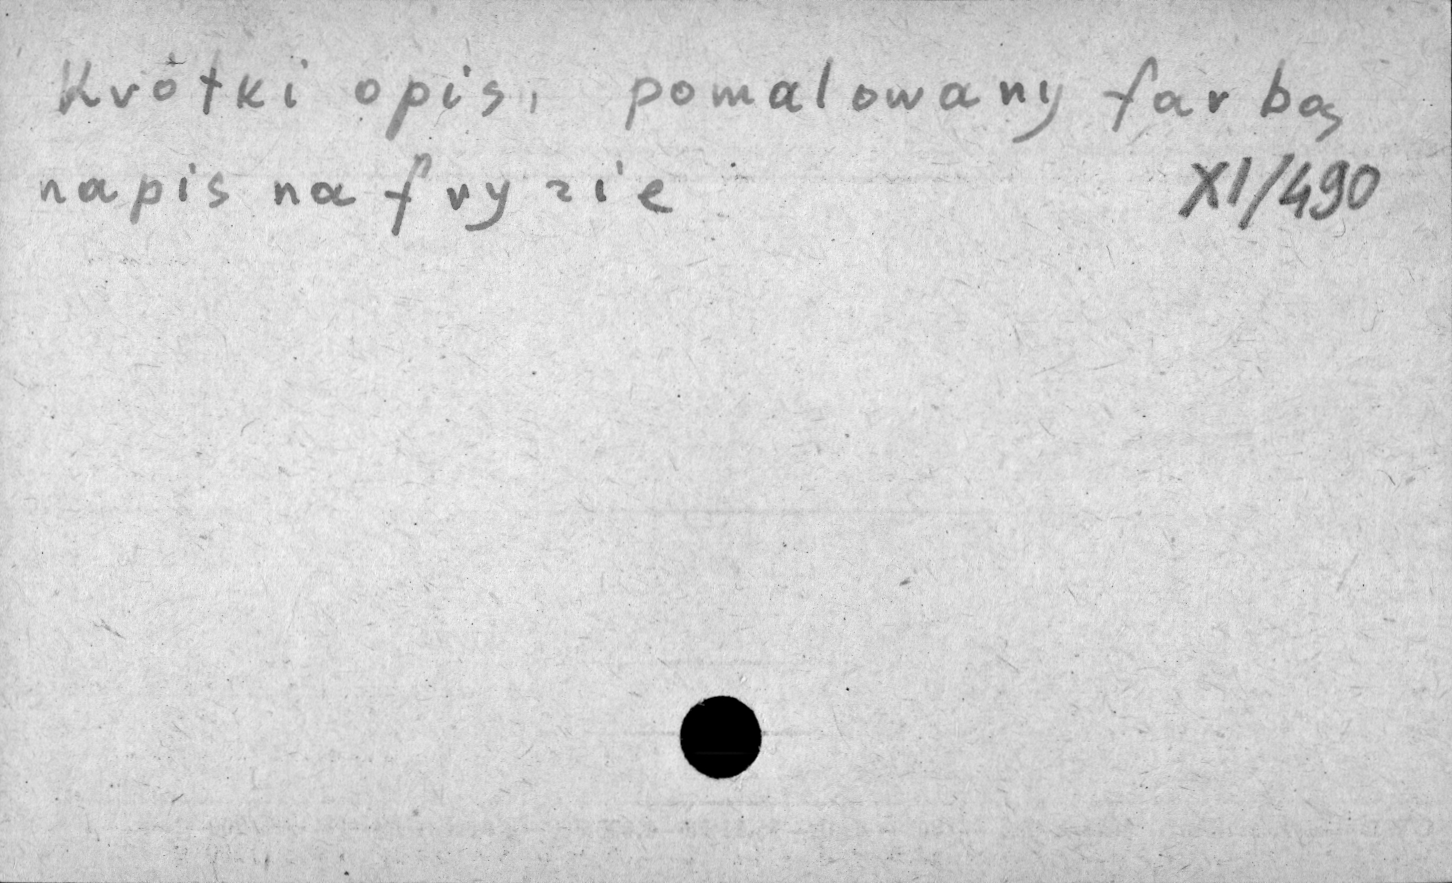 Krótki opis, pomalowany farbą
napis na fryzie XI/490